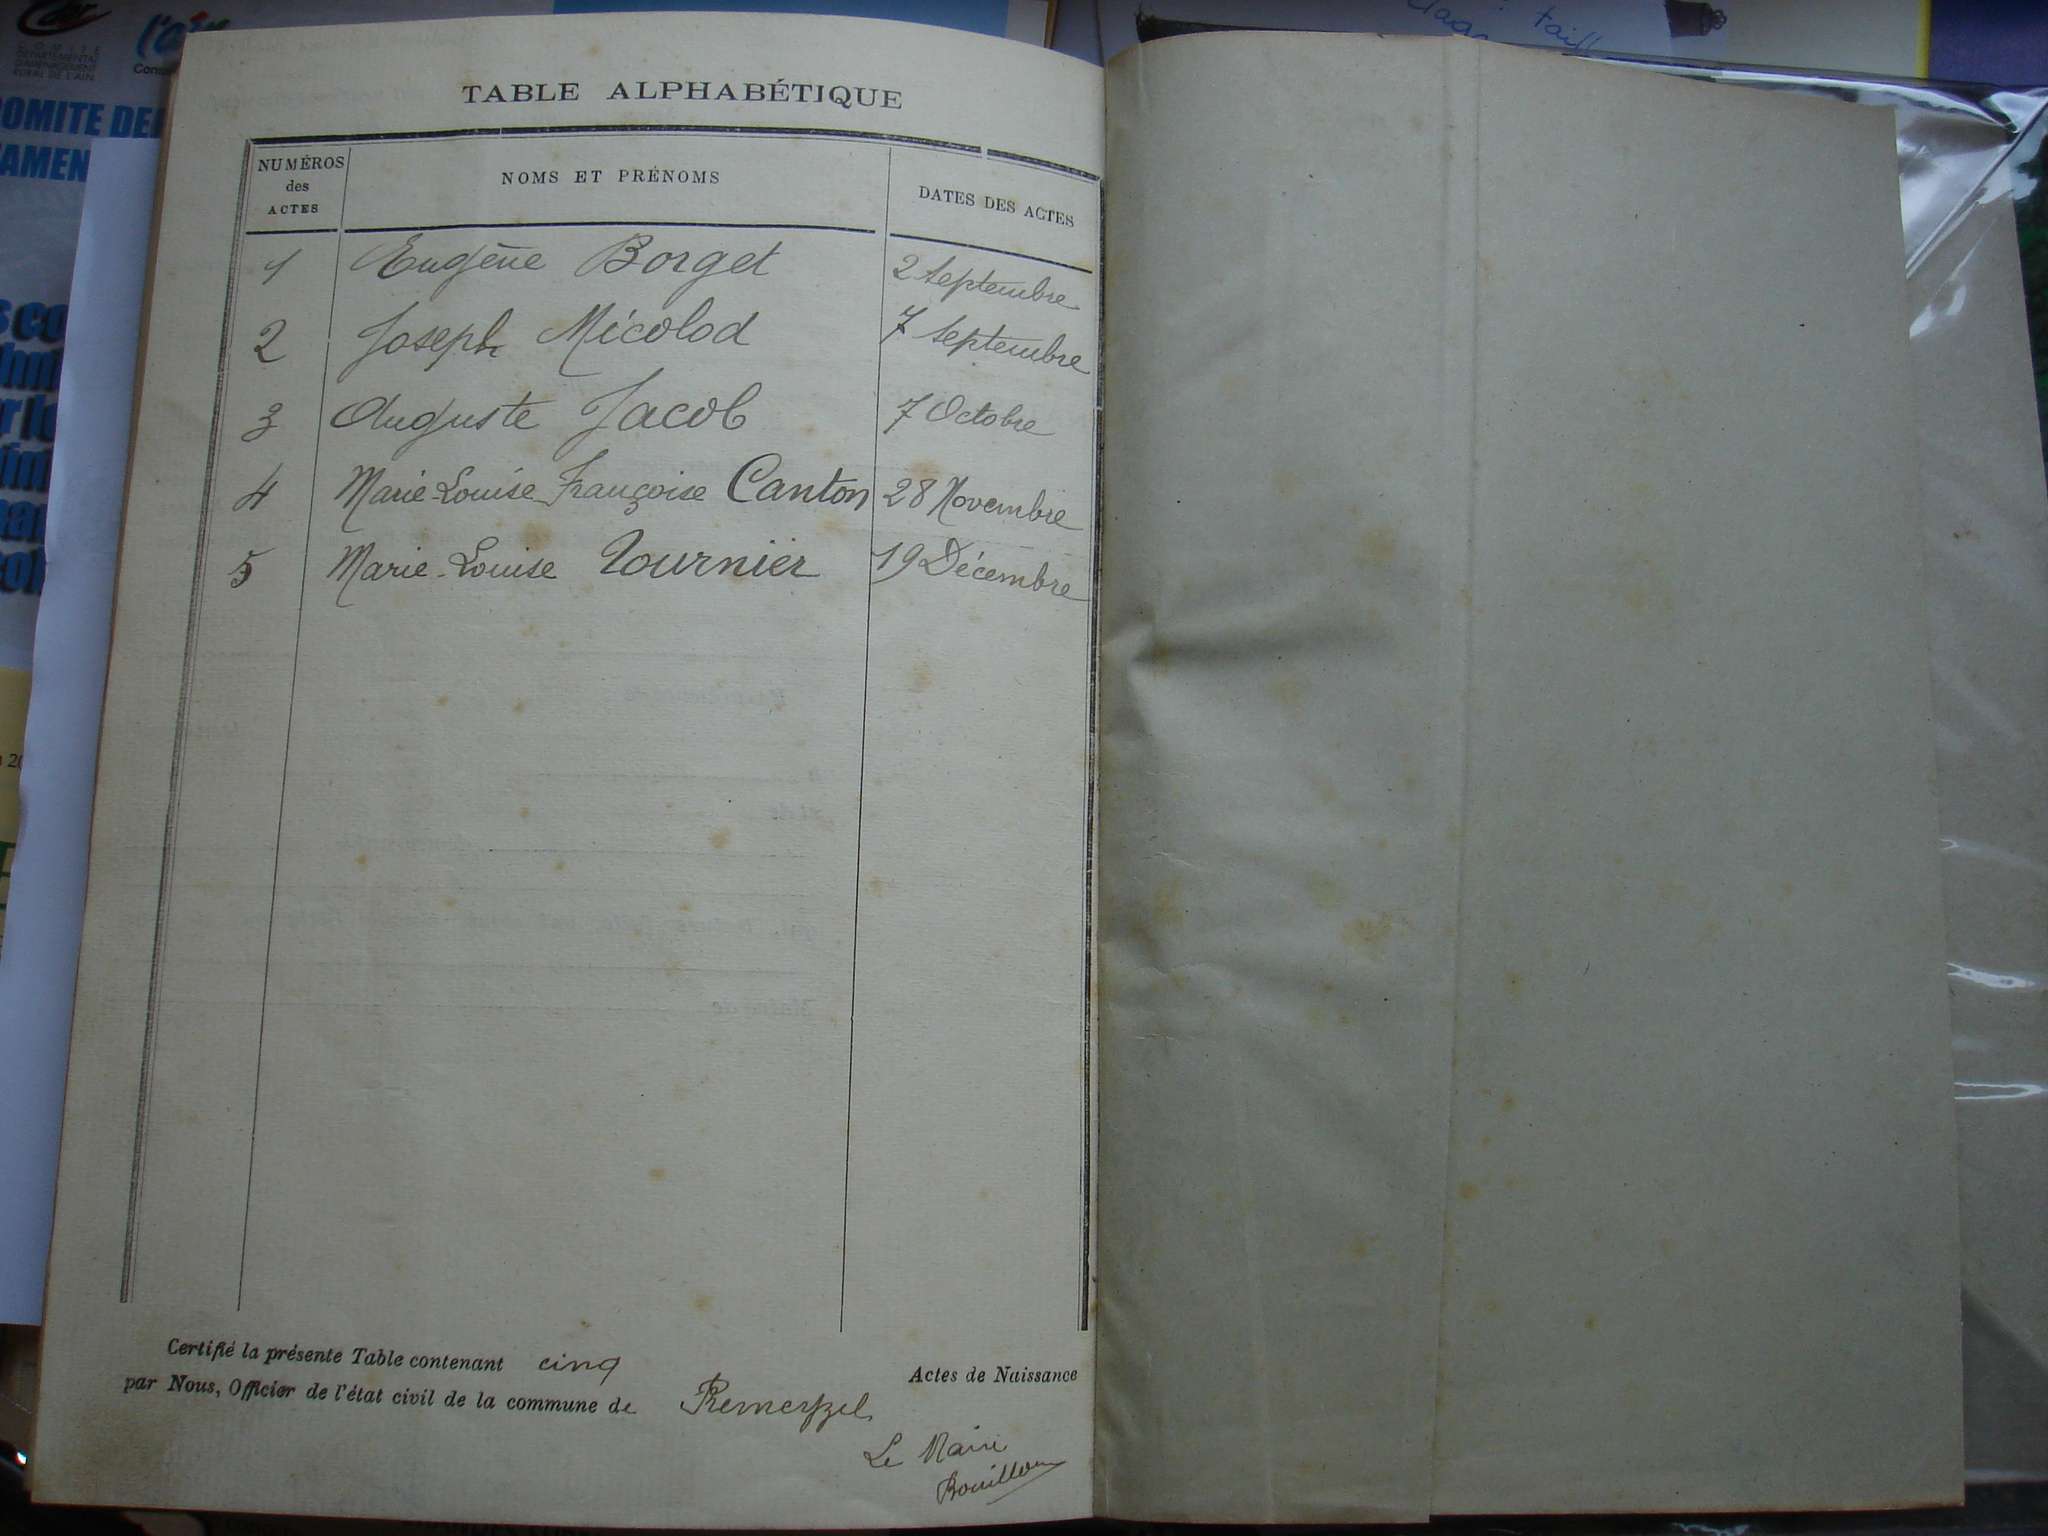 COMITE
DEPARTEMENTAL
D'AMENAGEMENT
RURAL DE L'AIN
l'ain
COMITE DE
TABLE ALPHABÉTIQUE
NUMÉROS des ACTES NOMS ET PRÉNOMS DATES DES ACTES
1 Eugène Borget 2 Septembre
2 Joseph Micolod 7 Septembre
3 Auguste Jacob 7 Octobre
4 Marie-Louise Françoise Canton 28 Novembre
5 Marie-Louise Tournier 19 Décembre
Certifié la présente Table contenant cinq Actes de Naissance
par Nous, Officier de l'état civil de la commune de Premeyzel
Le Maire
Bouillon